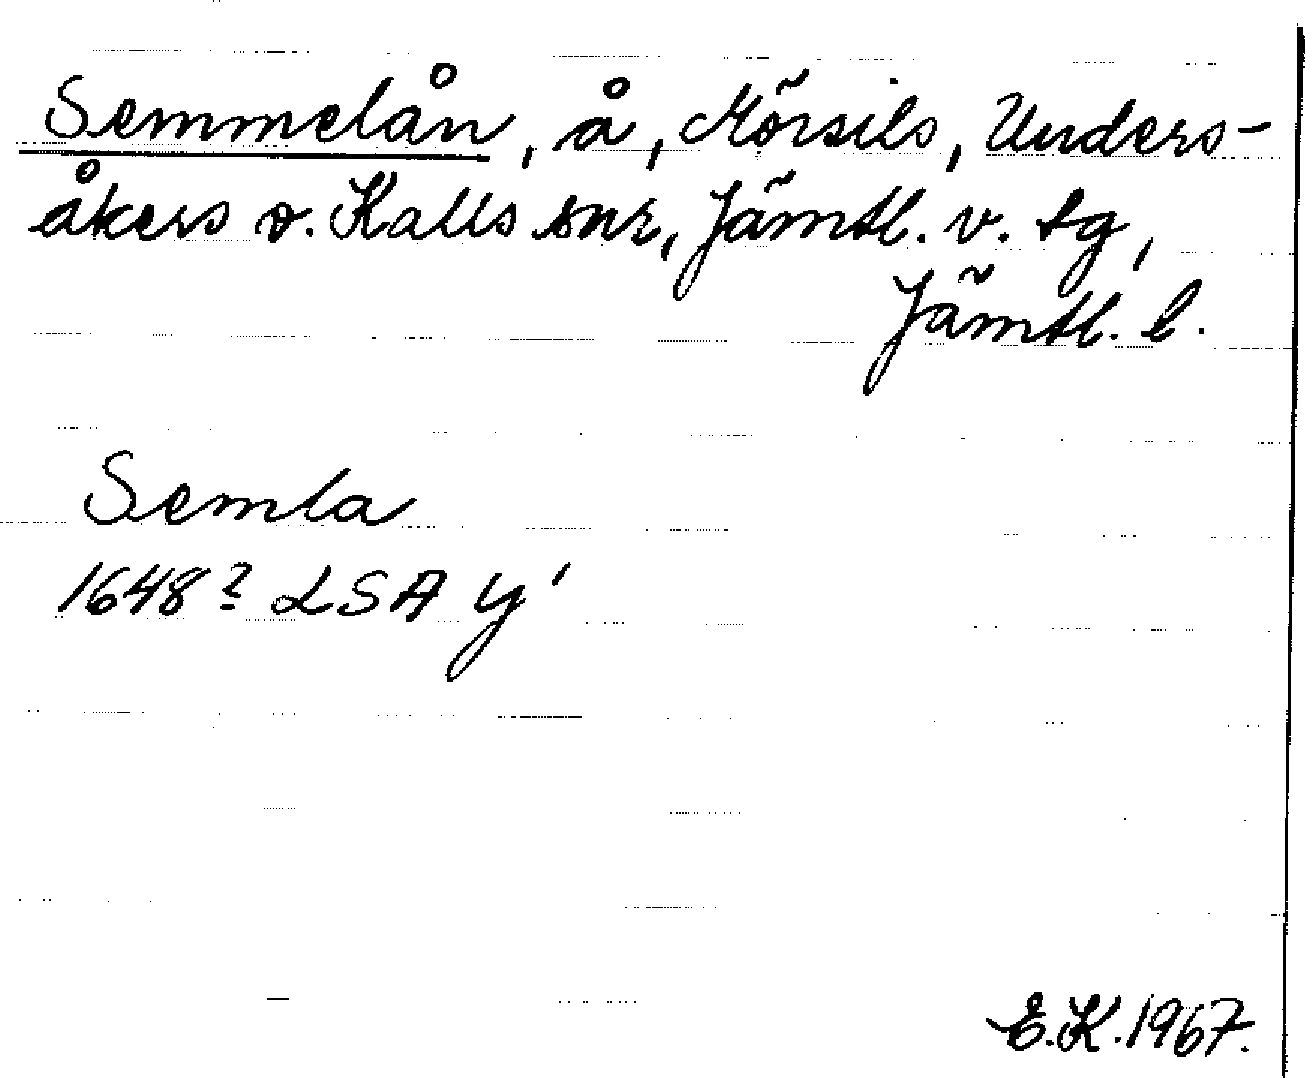 Semmelån, å, Mörsils, Unders-
åkers o. Kalls snr, Jämtl. v. tg,
Jämtl. l.
Semla
1648? LSA Y'
E.K. 1967.